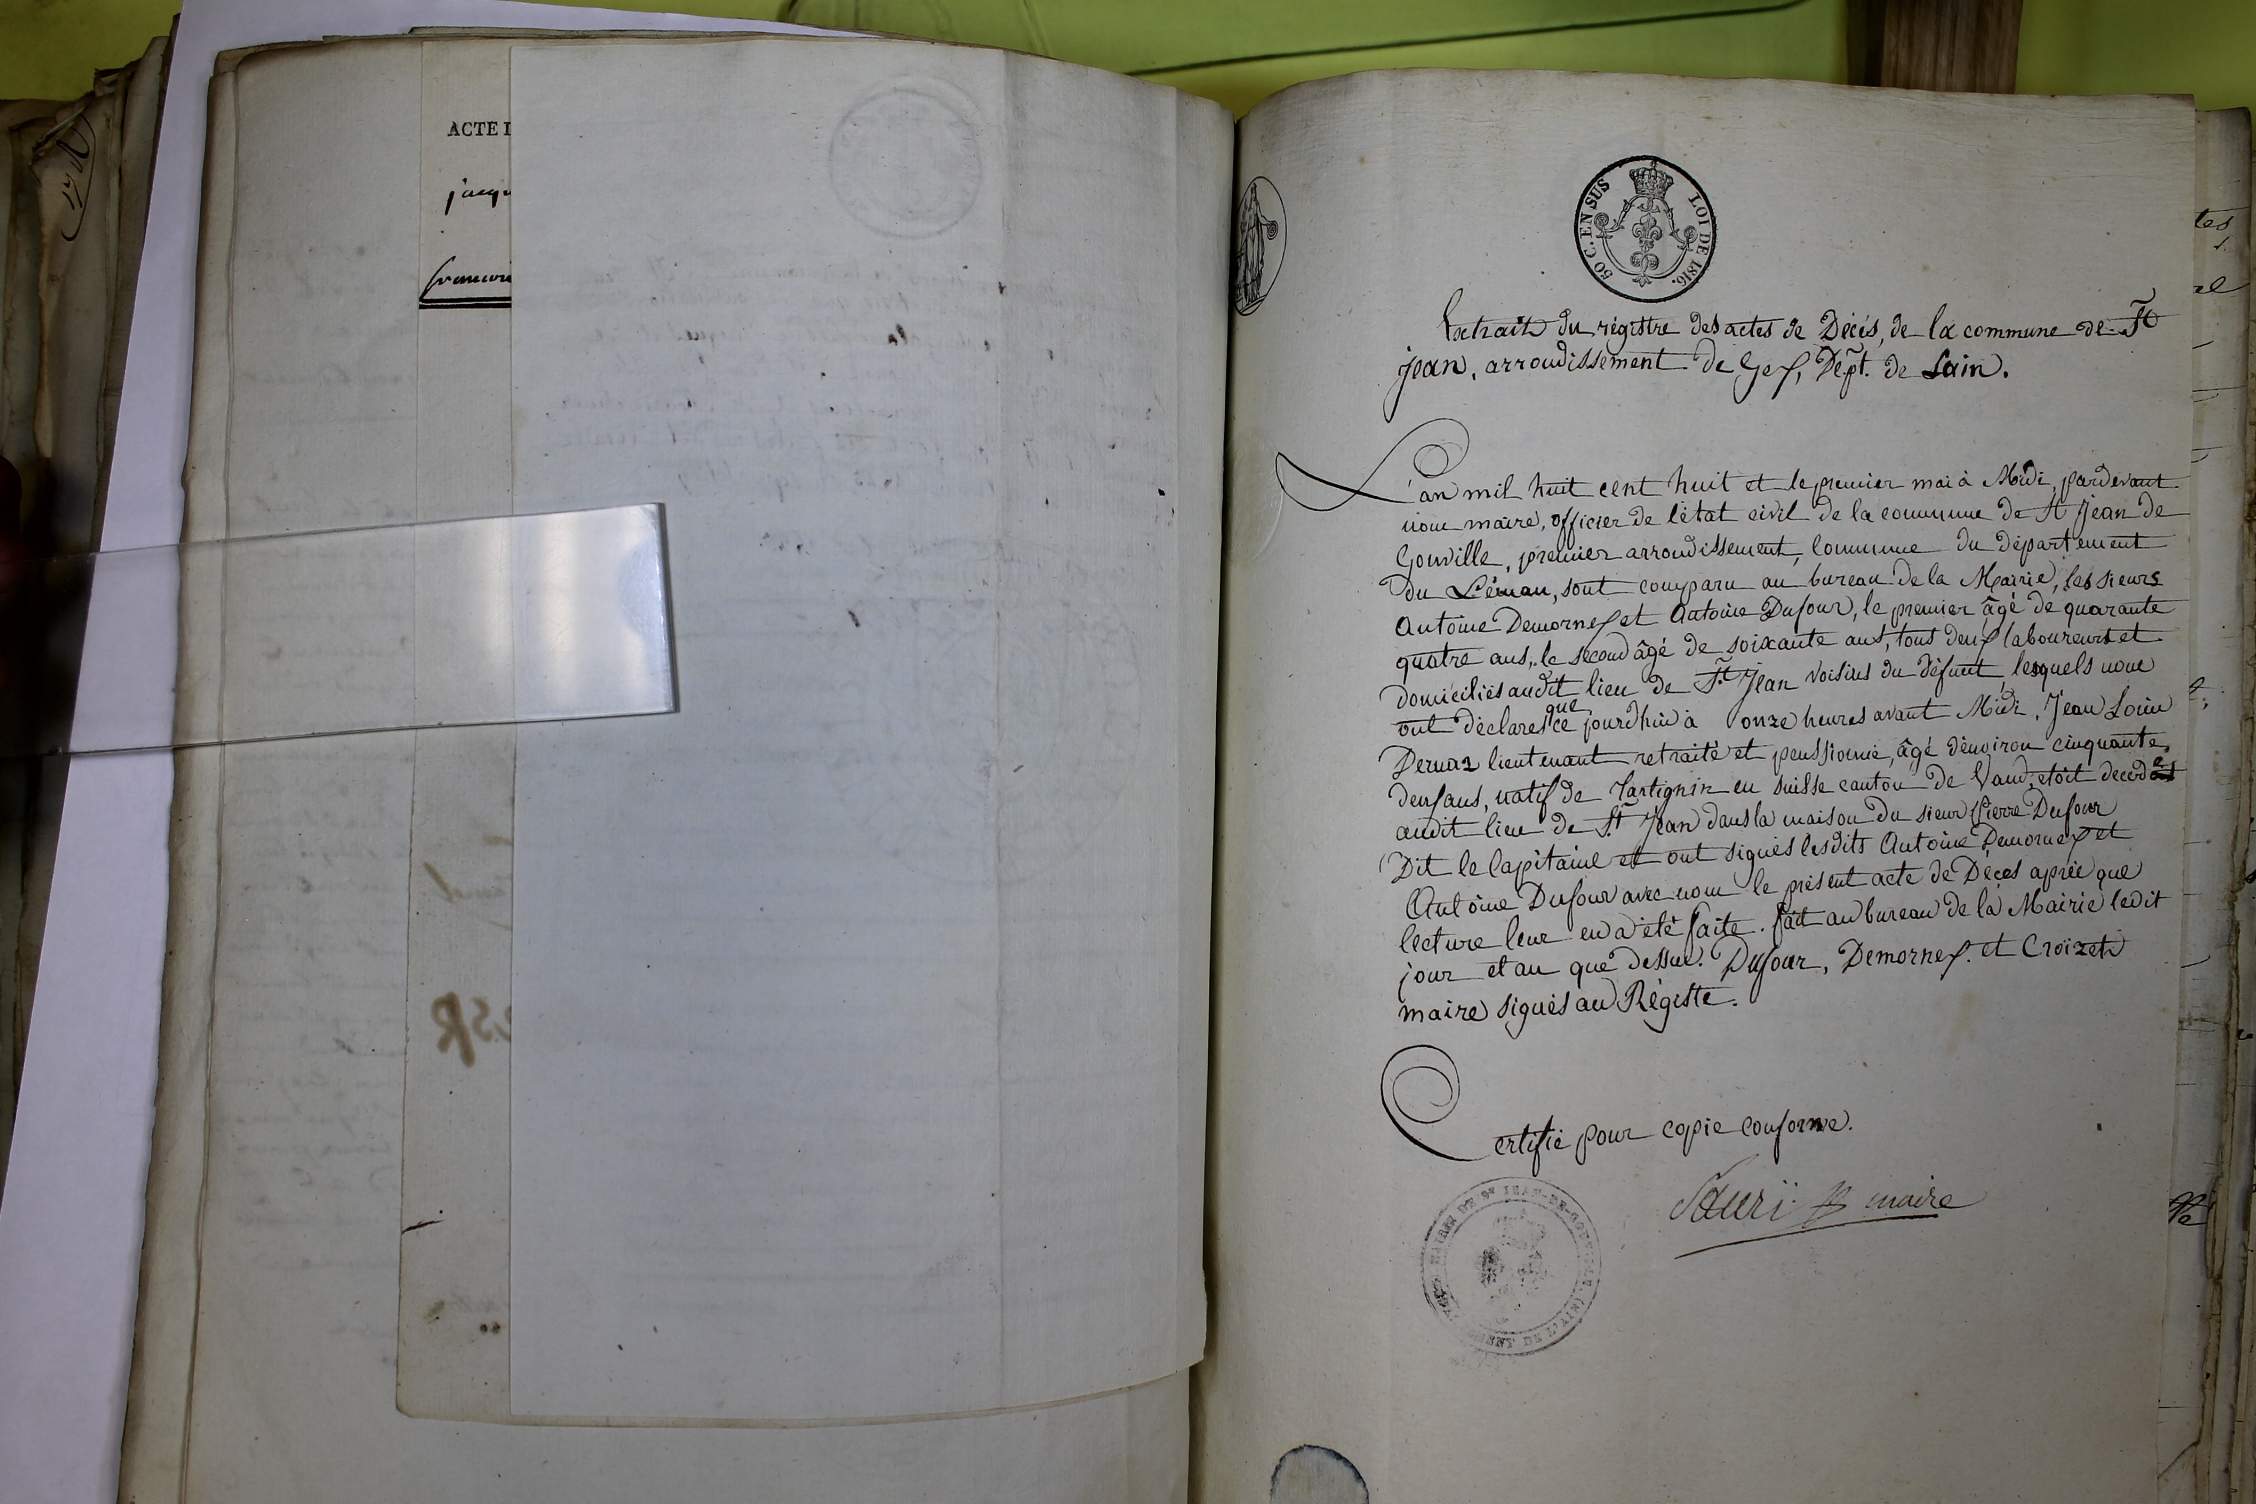 ACTE
jacqu
50 C. EN SUS
LOI DE 1816.
Extrait du régistre des actes de Décés, de la commune de St
jean, arrondissement de Gex, Dépt. de Lain.
L'an mil huit cent huit et le premier mai à Midi, pardevant
nous maire, officier de l'état civil de la commune de St Jean de
Gonville, premier arrondissement, Commune du département
du Léman, sont comparu au bureau de la Mairie, les sieurs
Antoine Demornex et Antoine Dufour, le premier âgé de quarante
quatre ans, le second âgé de soixante ans, tous deux laboureurs et
domiciliés audit lieu de St Jean voisins du défunt, lesquels nous
ont déclarés que ce jourdhui à onze heures avant Midi, Jean Louis
Dernaz lieutenant retraité et penssionné, âgé d'environ cinquante
deux ans, natif de Tartignin en suisse canton de Vaud, etoit decedé
audit lieu de St Jean dans la maison du sieur Pierre Dufour
Dit le Capitaine et ont signés lesdits Antoine Demornex et
Antoine Dufour avec nous le présent acte de Décés après que
lecture leur en a été faite. fait au bureau de la Mairie ledit
jour et an que dessus. Dufour, Demornex. et Croizet
maire signés au Régiste.
Certifié pour copie conforme.
maire
MAIRIE DE ST JEAN-DE-GONVILLE